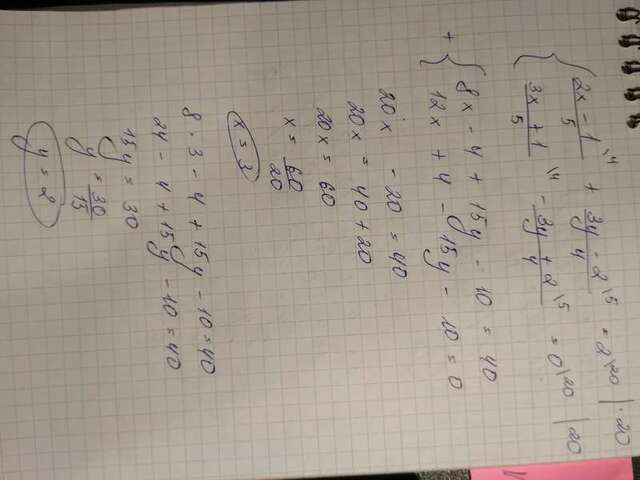 { (2x - 1)/5 \4 + (3y - 2)/4 \5 = 2 \20 | · 20
{ (3x + 1)/5 \4 - (3y + 2)/4 \5 = 0 \20 | 20
+ { 8x - 4 + 15y - 10 = 40
{ 12x + 4 - 15y - 10 = 0
20x - 20 = 40
20x = 40 + 20
20x = 60
x = 60/20
x = 3
8 · 3 - 4 + 15y - 10 = 40
24 - 4 + 15y - 10 = 40
15y = 30
y = 30/15
y = 2